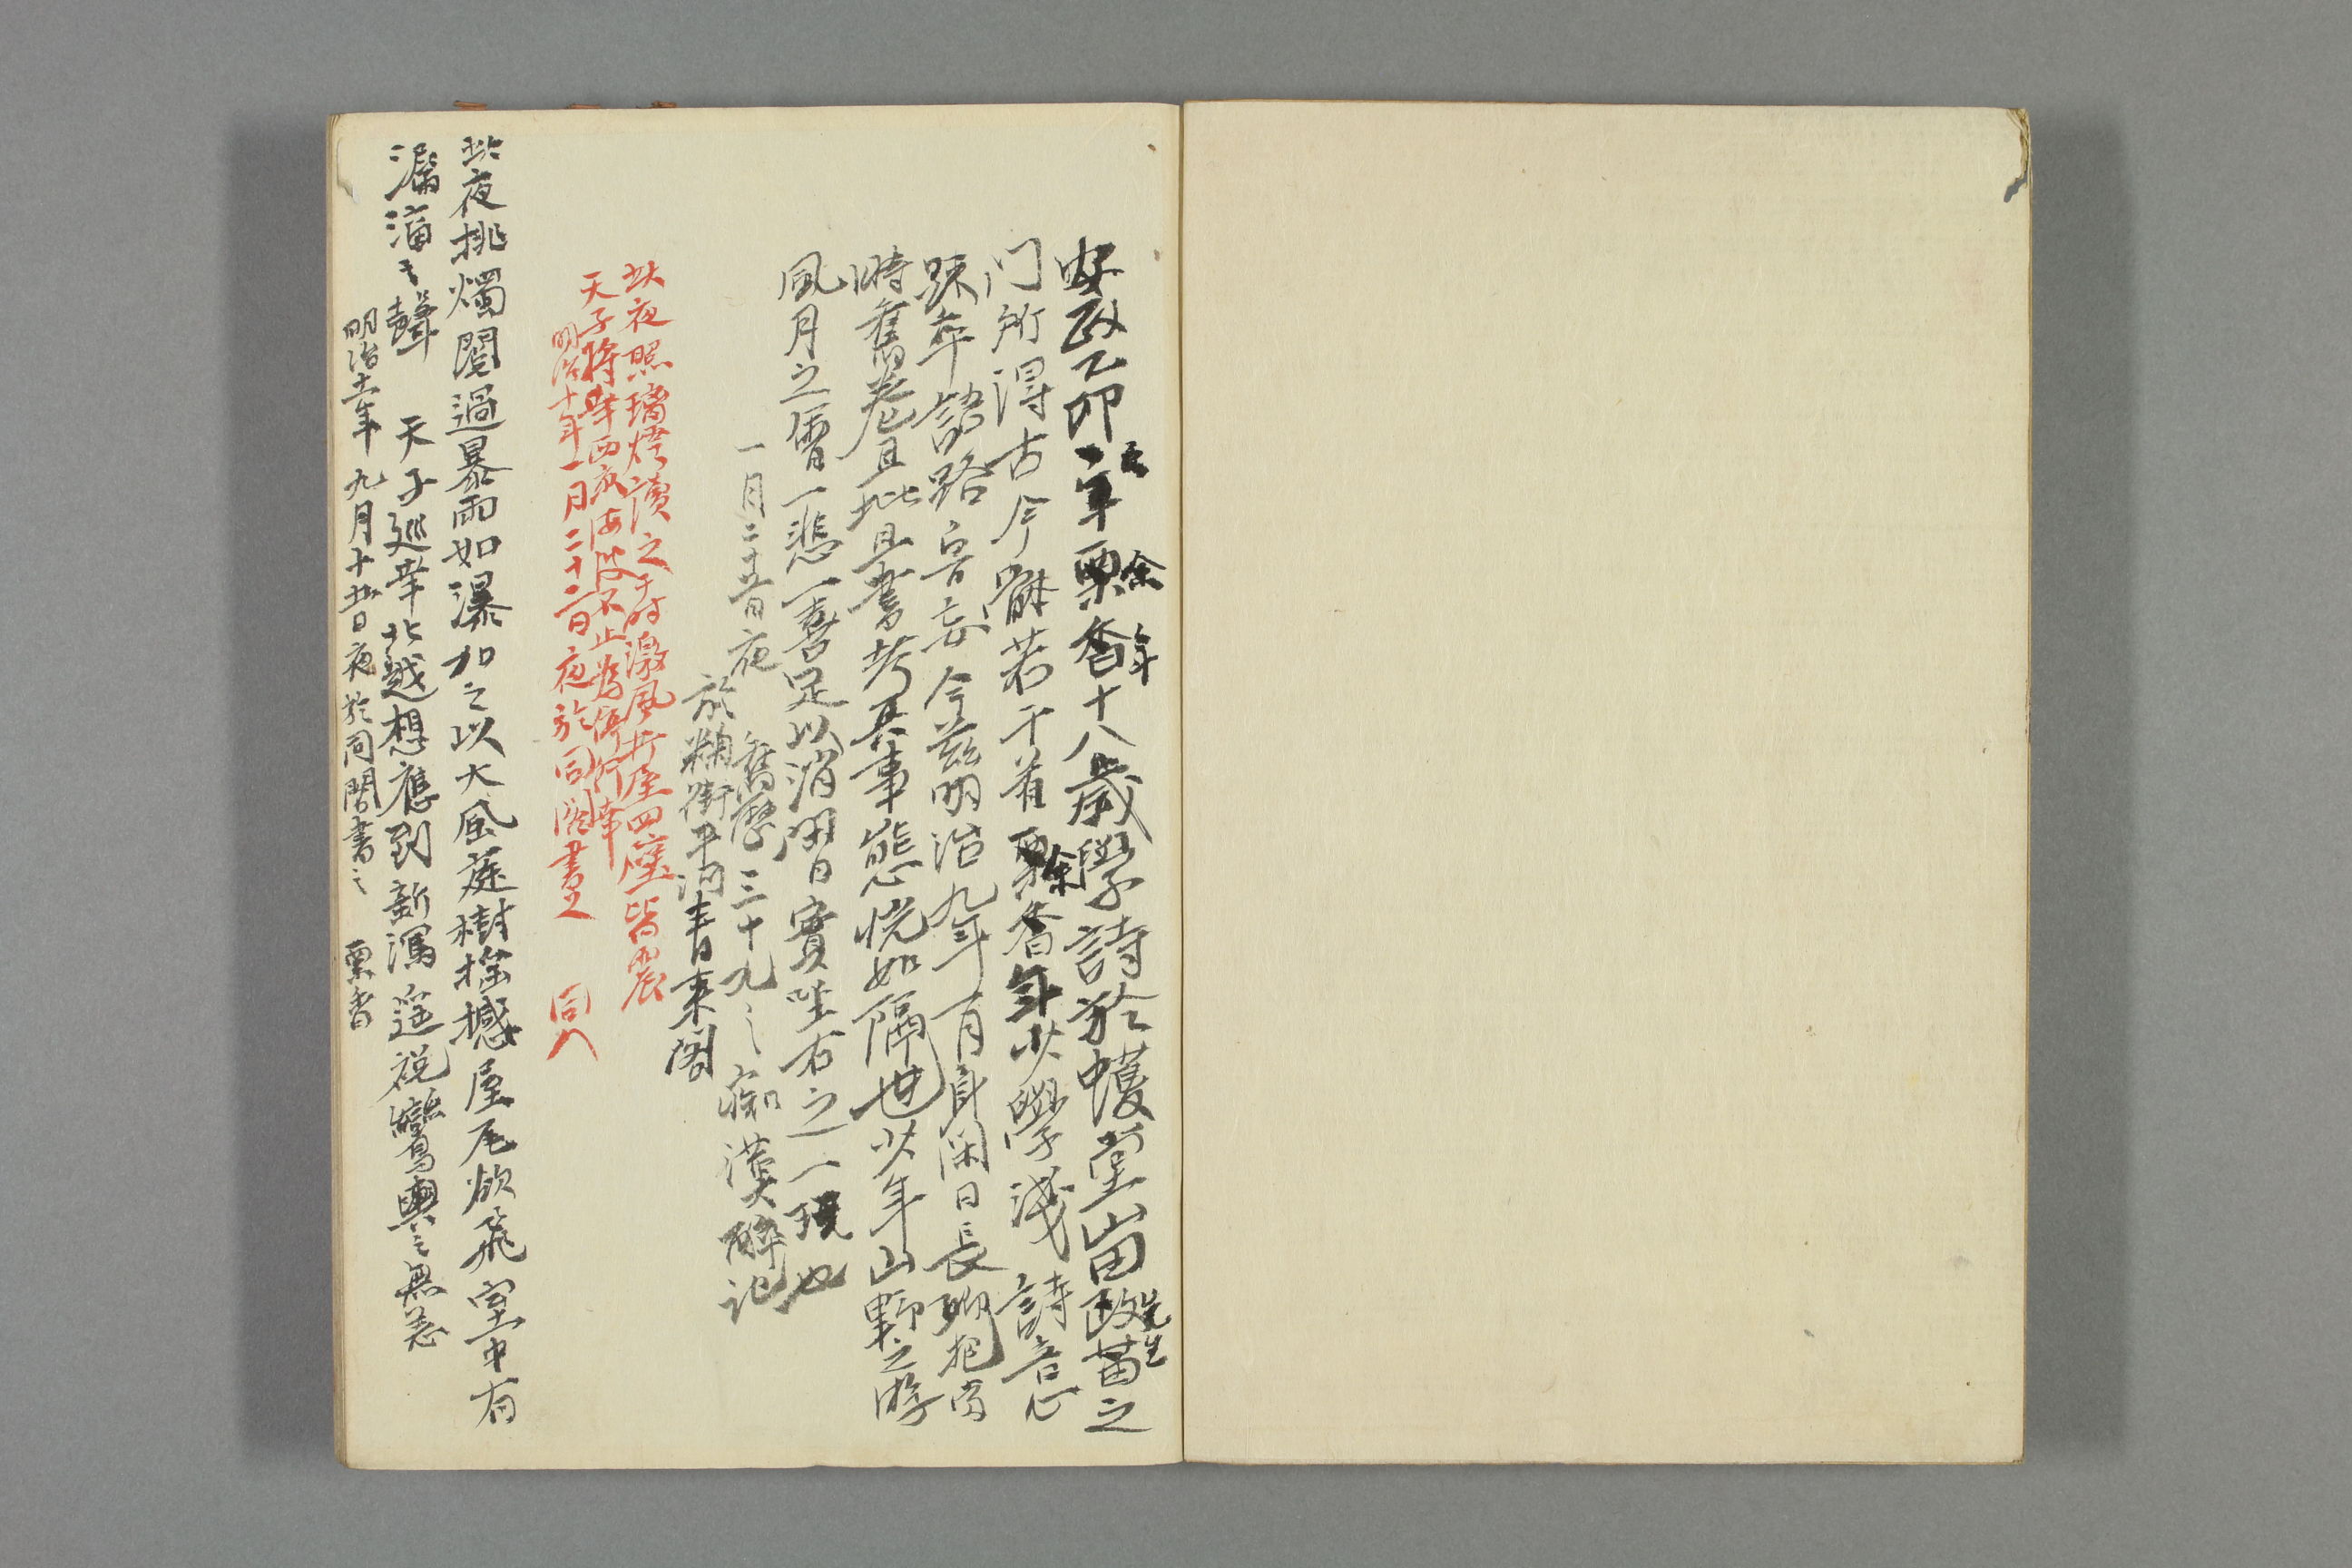 安政乙卯之年余年十八歳學詩於蠖堂山田政苗先生之
門所得古今觧若干首余年少學淺詩意心
疎平語路皆忘今茲明治九年有身閑日長聊把當
時舊卷且批且書考其事態恍如隔世少年山野之游
風月之宵一悲一喜足以消閑日實坐右之一珍也
一月二十五日夜 舊歷三十九之痴漢醉記
於麹街平河青來閣
此夜照璃燈讀之于時激風折屋四座皆震
天子將幸西京海波不止為停行幸
明治十年一月二十二日夜於同閣書之 同人
此夜挑燭閲過暴雨如瀑加之以大風庭樹搖撼屋瓦欲飛室中有
漏滴々聲 天子巡幸北越想應到新潟遥祝鸞輿之無恙
明治十一年九月十五日夜於同閣書之 栗香